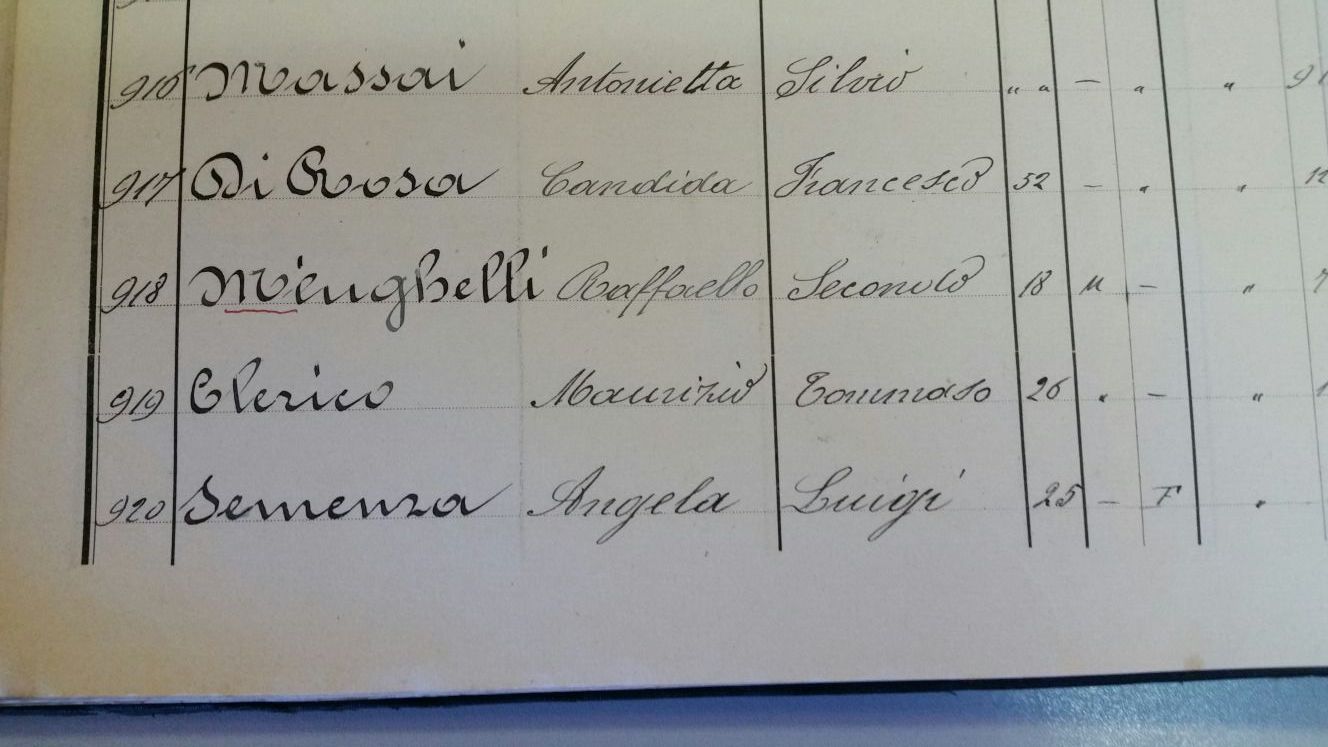 916 Massai Antonietta Silvio " " — " " 9
917 Di Rosa Candida Francesco 52 — " " 12
918 Menghelli Raffaello Secondo 18 M — " 7
919 Clerico Maurizio Tommaso 26 " — " 1
920 Semenza Angela Luigi 25 — F "